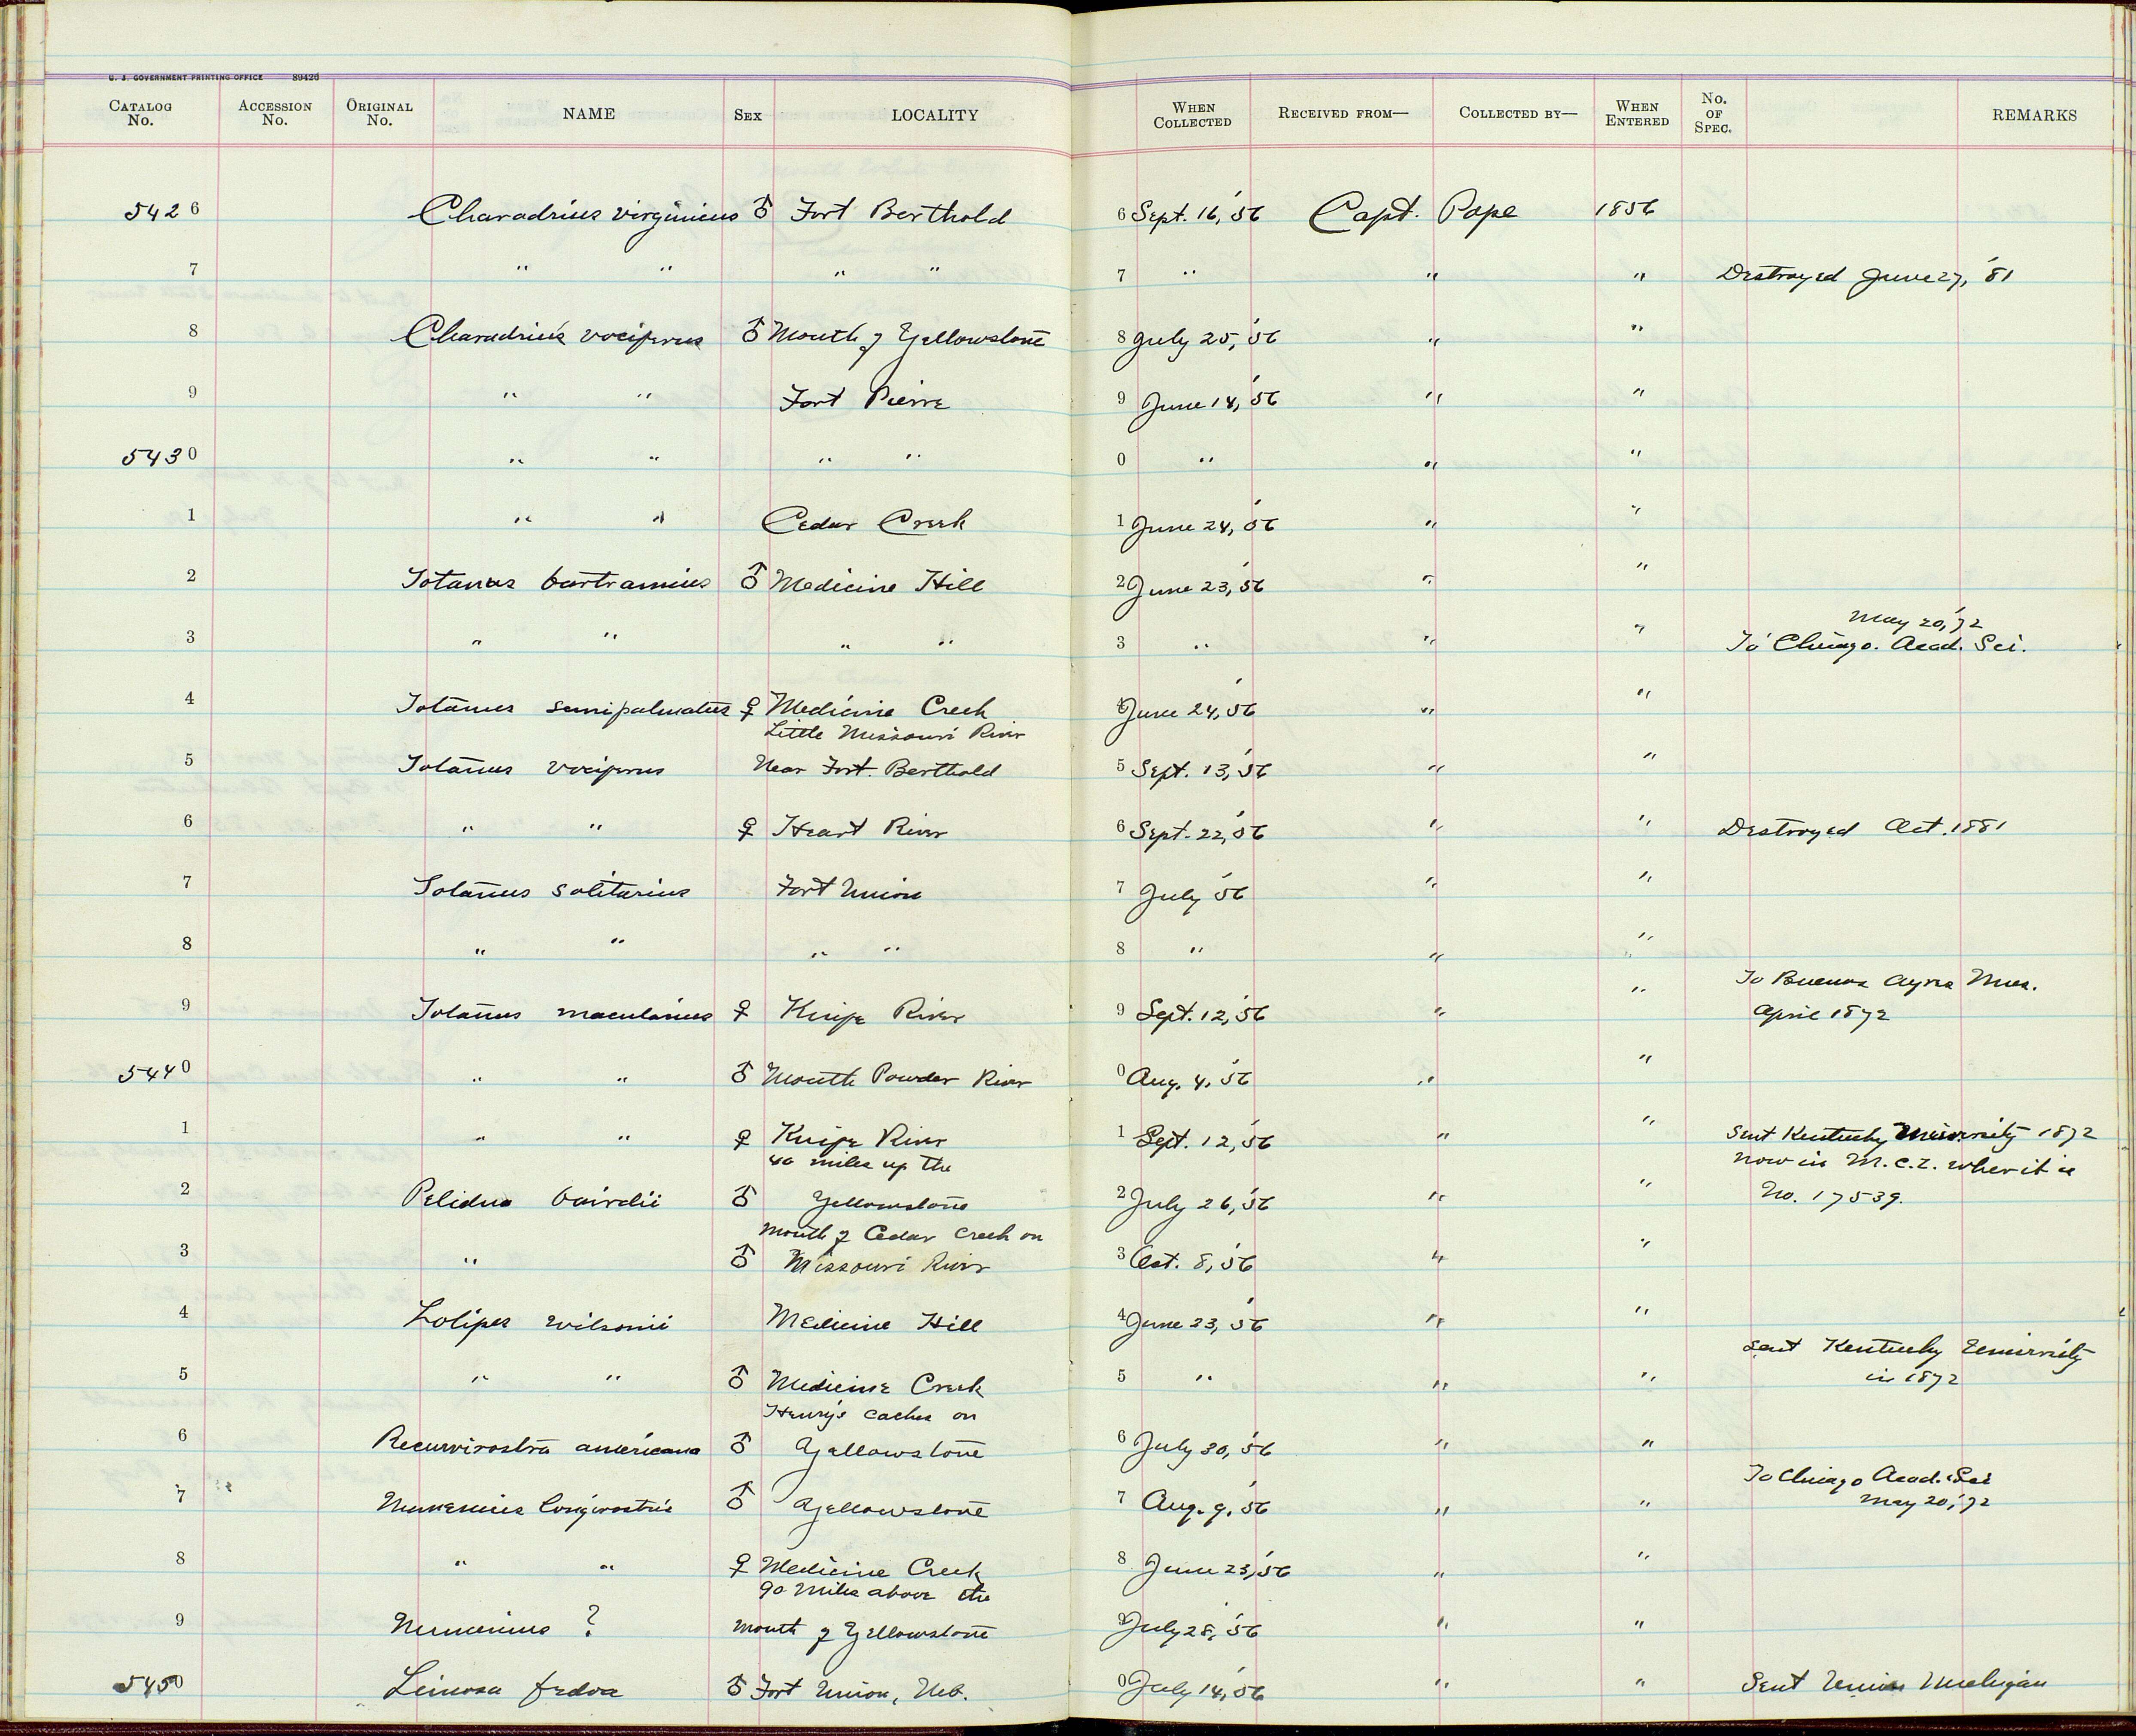 U. S. GOVERNMENT PRINTING OFFICE 89426
CATALOG No. ACCESSION No. ORIGINAL No. NAME SEX LOCALITY WHEN COLLECTED RECEIVED FROM— COLLECTED BY— WHEN ENTERED No. OF SPEC. REMARKS
5426 Charadrius virginicus ♂ Fort Berthold 6 Sept. 16, '56 Capt. Pope 1856
7 " " " " 7 " " " Destroyed June 27, '81
8 Charadrius vociferus ♂ Mouth of Yellowstone 8 July 25, '56 " "
9 " " Fort Pierre 9 June 14, '56 " "
5430 " " " " 0 " " "
1 " " Cedar Creek 1 June 24, '56 " "
2 Totanus bartramius ♂ Medicine Hill 2 June 23, '56 " "
May 20, '72
3 " " " " 3 " " " To Chicago. Acad. Sci.
4 Totanus semipalmatus ♀ Medicine Creek June 24, '56 " "
Little Missouri River
5 Totanus vociferus Near Fort. Berthold 5 Sept. 13, '56 " "
6 " " ♀ Heart River 6 Sept. 22, '56 " " Destroyed Oct. 1881
7 Totanus solitarius Fort Union 7 July '56 " "
8 " " " " 8 " " "
To Buenos Ayres Mus.
9 Totanus macularius ♀ Knife River 9 Sept. 12, '56 " " April 1872
5440 " " ♂ Mouth Powder River 0 Aug. 4, '56 " "
1 " " ♀ Knife River 1 Sept. 12, '56 " " Sent Kentucky University 1872
40 miles up the now in M.C.Z. where it is
2 Pelidna bairdii ♂ Yellowstone 2 July 26, '56 " " No. 17539.
Mouth of Cedar Creek on
3 " ♂ Missouri River 3 Oct. 8, '56 " "
4 Lobipes wilsonii Medicine Hill 4 June 23, '56 " "
Sent Kentucky University
5 " " ♂ Medicine Creek 5 " " " in 1872
Henry's caches on
6 Recurvirostra americana ♂ Yellowstone 6 July 30, '56 " "
To Chicago Acad. Sci
7 Numenius longirostris ♂ Yellowstone 7 Aug. 9, '56 " " May 20, '72
8 " " ♀ Medicine Creek 8 June 23, '56 " "
90 miles above the
9 Numenius ? mouth of Yellowstone 9 July 28, '56 " "
5450 Limosa fedoa ♂ Fort Union, Neb. 0 July 14, '56 " " Sent Univ. Michigan